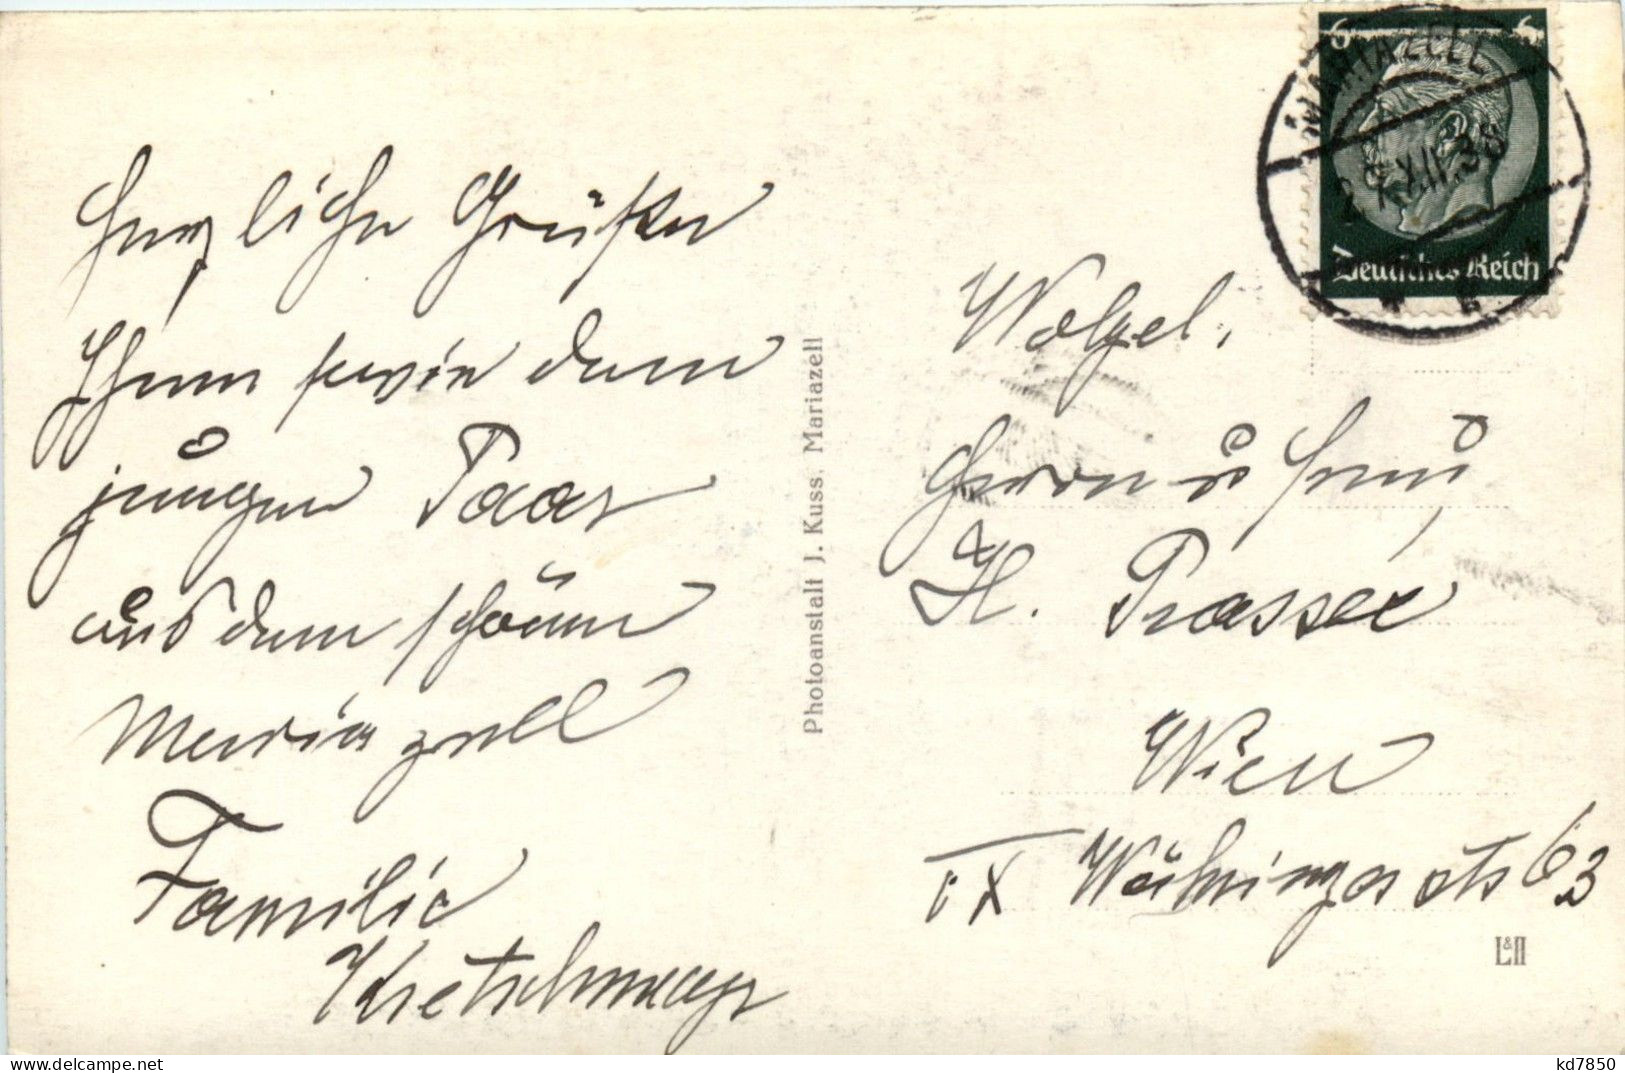 Herzliche Grüße
Ihnen sowie dem
jungen Paar
aus dem schönen
Mariazell
Familie
Kretschmayr
Photoanstalt J. Kuss, Mariazell
6 6
MARIAZELL
XII.38
Deutsches Reich
Wolgel.
Herrn u Frau
H. Prasser
Wien
IX Währingerstr 63
L&N
delcampe.net
kd7850